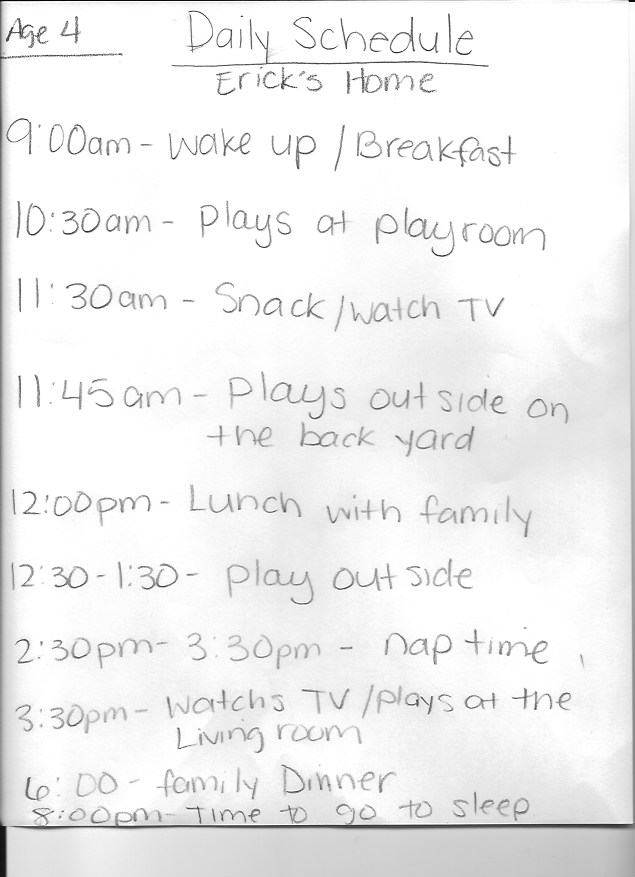 Age 4
Daily Schedule
Erick's Home
9:00am - Wake up / Breakfast
10:30am - Plays at playroom
11:30am - Snack/watch TV
11:45am - Plays outside on
the back yard
12:00pm - Lunch with family
12:30-1:30 - play outside
2:30pm - 3:30pm - nap time
3:30pm - Watchs TV /plays at the
Living room
6:00 - family Dinner
8:00pm - Time to go to sleep